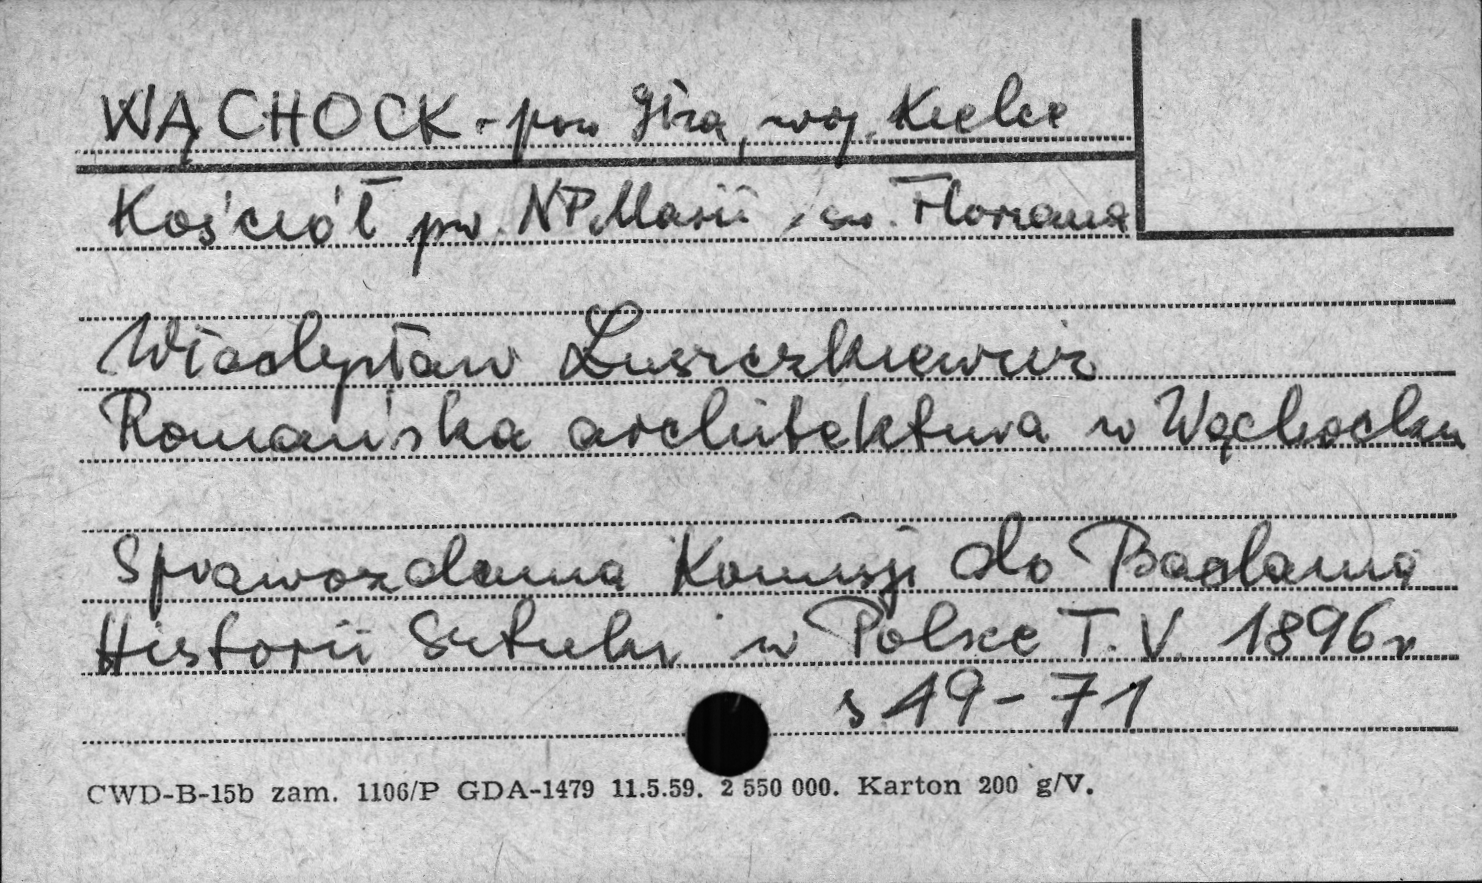 WĄCHOCK - pow Iłża, woj. Kielce
Kościół pw. NPMarii i św. Floriana
Władysław Łuszczkiewicz
Romańska architektura w Wąchocku
Sprawozdania Komisji do Badania
Historii Sztuki w Polsce T. V. 1896r
s 49-71
CWD-B-15b zam. 1106/P GDA-1479 11.5.59. 2 550 000. Karton 200 g/V.